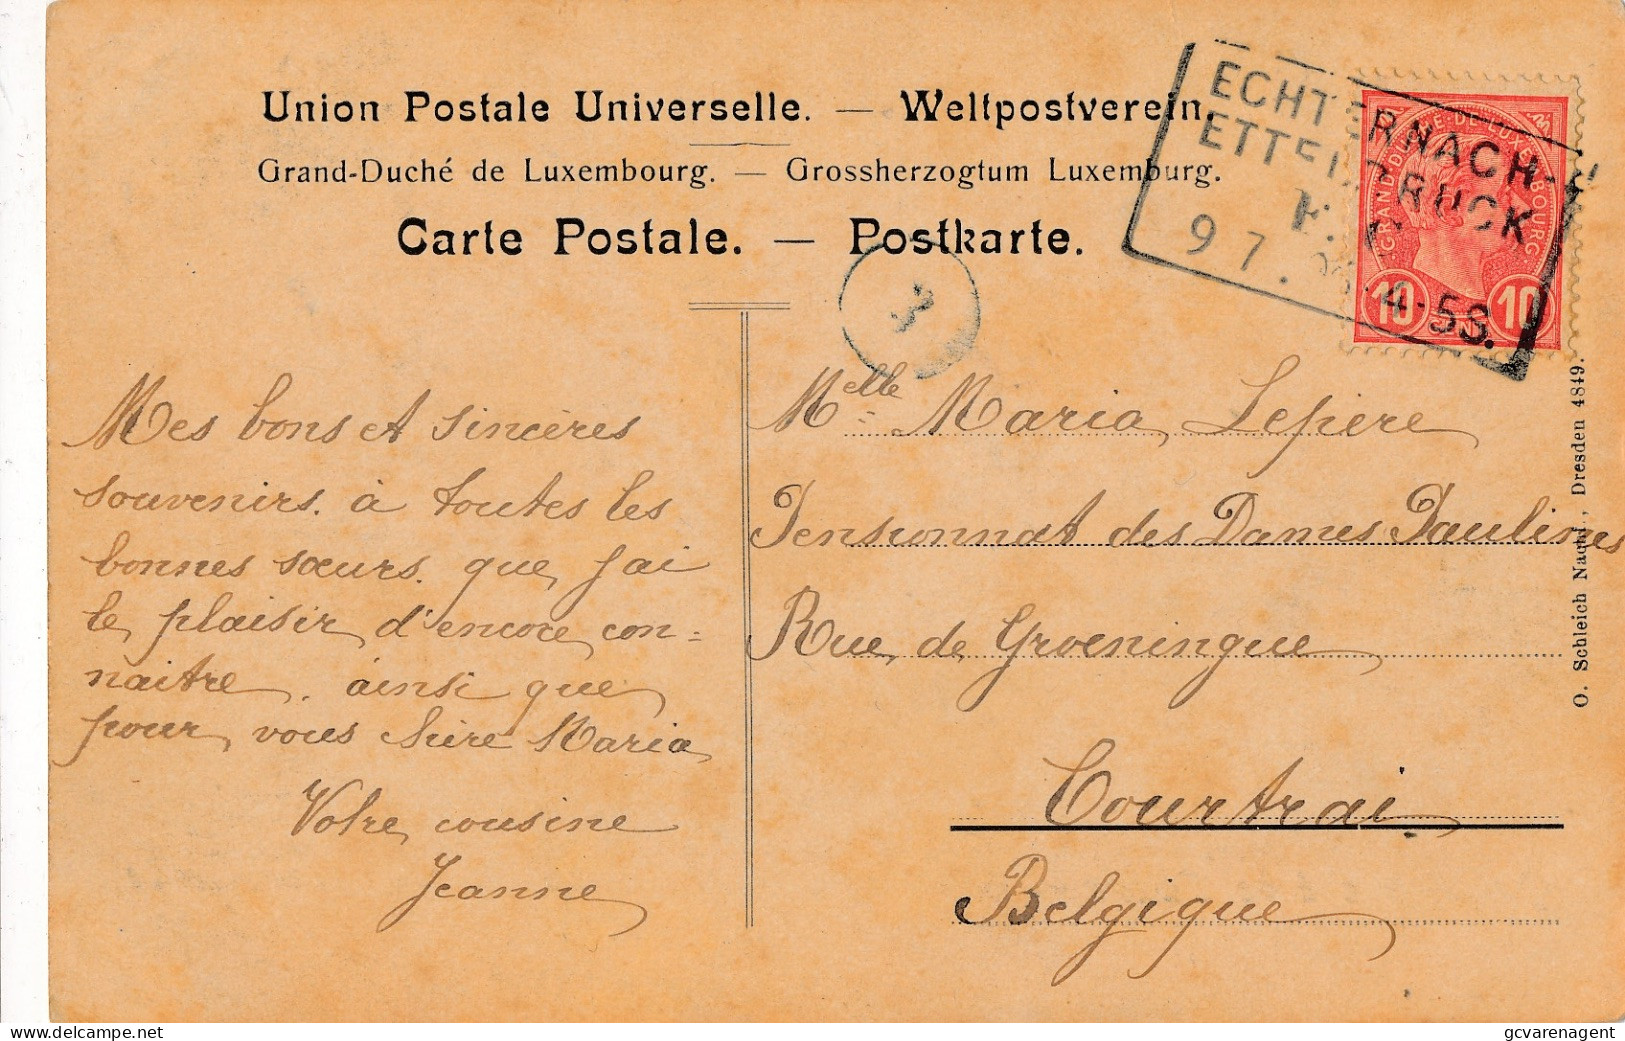 Union Postale Universelle. — Weltpostverein.
Grand-Duché de Luxembourg. — Grossherzogtum Luxemburg.
Carte Postale. — Postkarte.
ECHTERNACH-
ETTELBRUCK
9 7. 4-5S.
GRAND DUCHÉ-DE-LUXEMBOURG
10 10
3
Melle Maria Lepère
Pensionnat des Dames Paulines
Rue de Groeningue
Courtrai
Belgique
Mes bons et sincères
souvenirs. à toutes les
bonnes sœurs. que j'ai
le plaisir d'encore con=
naitre. ainsi que
pour vous chère Maria
Votre cousine
Jeanne
O. Schleich Nachf., Dresden 4849.
gcvarenagent
delcampe.net